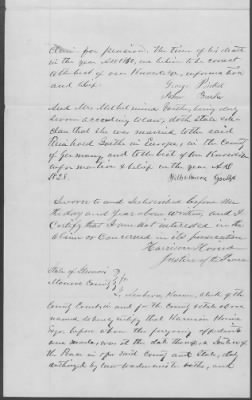 claim for pension. The time of his death
in the year A.D. 1860, we believe to be correct
to the best of our Knowledge, information
and belief.
George
John
And Mrs. Wilhelmina being duly
sworn according to law, doth state
that she was married to the said
in Europe, in the County
of Germany, and to the best of her Knowledge
information & belief in the year A.D.
1828. Wilhelmina
Sworn to and Subscribed before me
the day and year above written, and I
Certify that I am not interested in the
claim or Concerned in its prosecution
Harrison
Justice of the Peace
State of Illinois
Monroe County
clerk of the
County Court in and for the County & State above
named do hereby certify that Harrison
Esqr. before whom the foregoing affidavits
were made, was at the date thereof a Justice of
the Peace in & for said County and State, duly
authorized by law to administer oaths, and